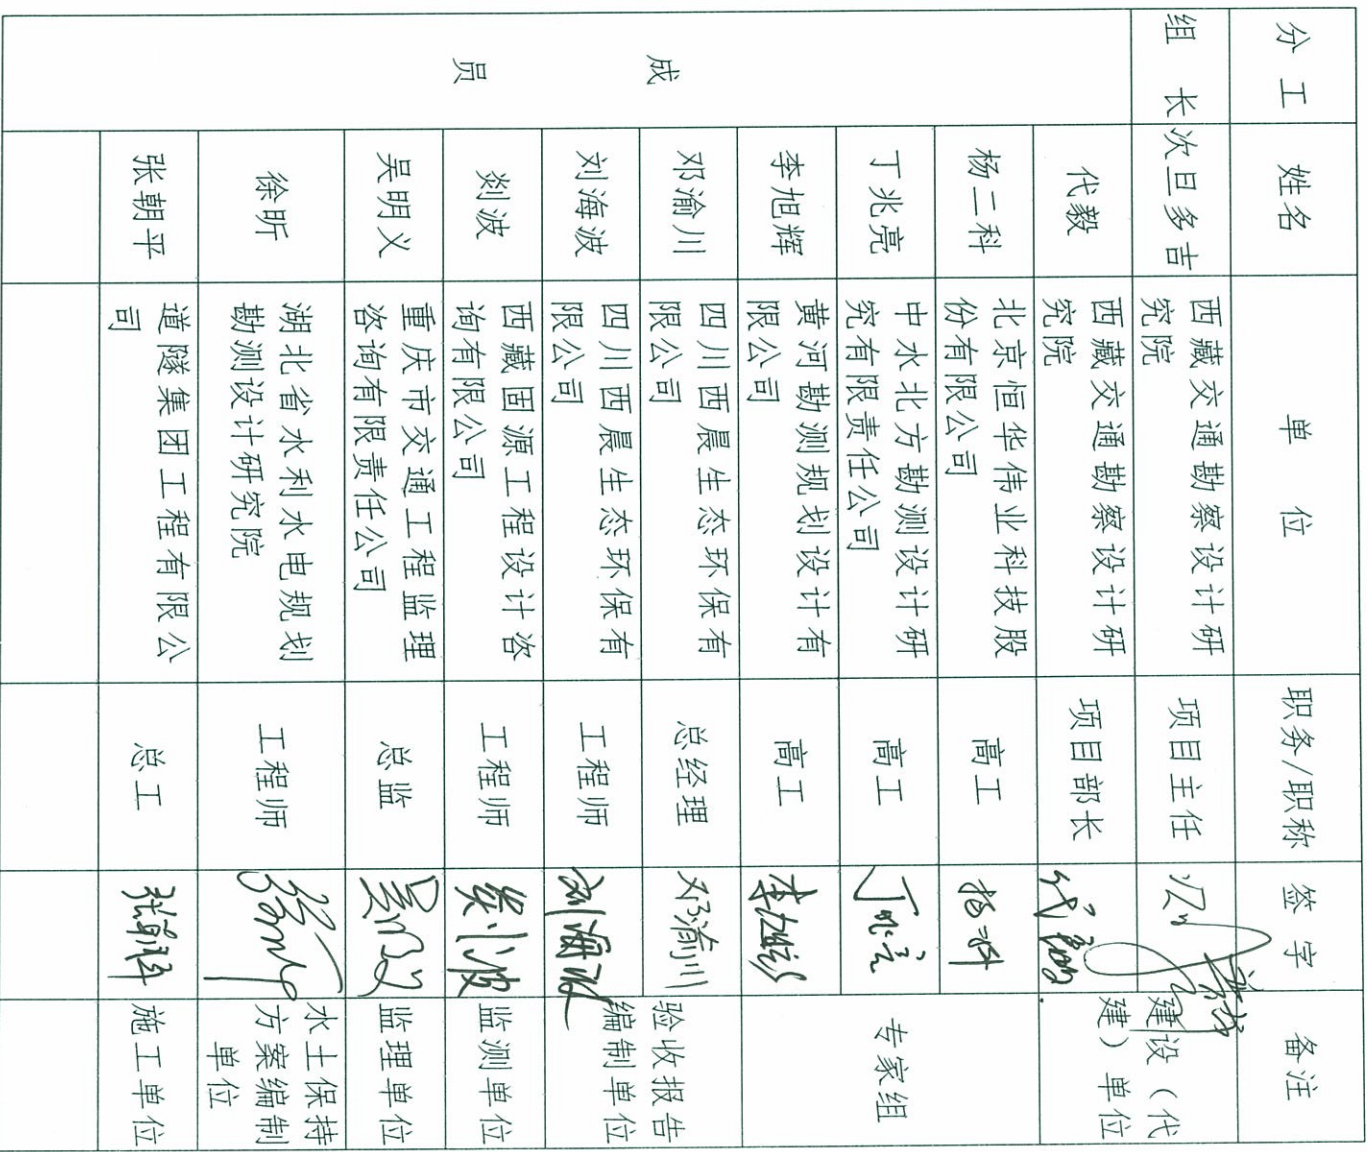 分工 姓名 单位 职务/职称 签字 备注
组长 次旦多吉 西藏交通勘察设计研
究院 项目主任
建设（代
建）单位
成员
代毅 西藏交通勘察设计研
究院 项目部长 代毅
杨二科 北京恒华伟业科技股
份有限公司 高工 杨二科
专家组
丁兆亮 中水北方勘测设计研
究有限责任公司 高工 丁兆亮
李旭辉 黄河勘测规划设计有
限公司 高工 李旭辉
邓渝川 四川西晨生态环保有
限公司 总经理 邓渝川
验收报告
编制单位
刘海波 四川西晨生态环保有
限公司 工程师 刘海波
剡波 西藏固源工程设计咨
询有限公司 工程师 监测单位
吴明义 重庆市交通工程监理
咨询有限责任公司 总监 吴明义 监理单位
徐昕 湖北省水利水电规划
勘测设计研究院 工程师
水土保持
方案编制
单位
张朝平 道隧集团工程有限公
司 总工 张朝平 施工单位